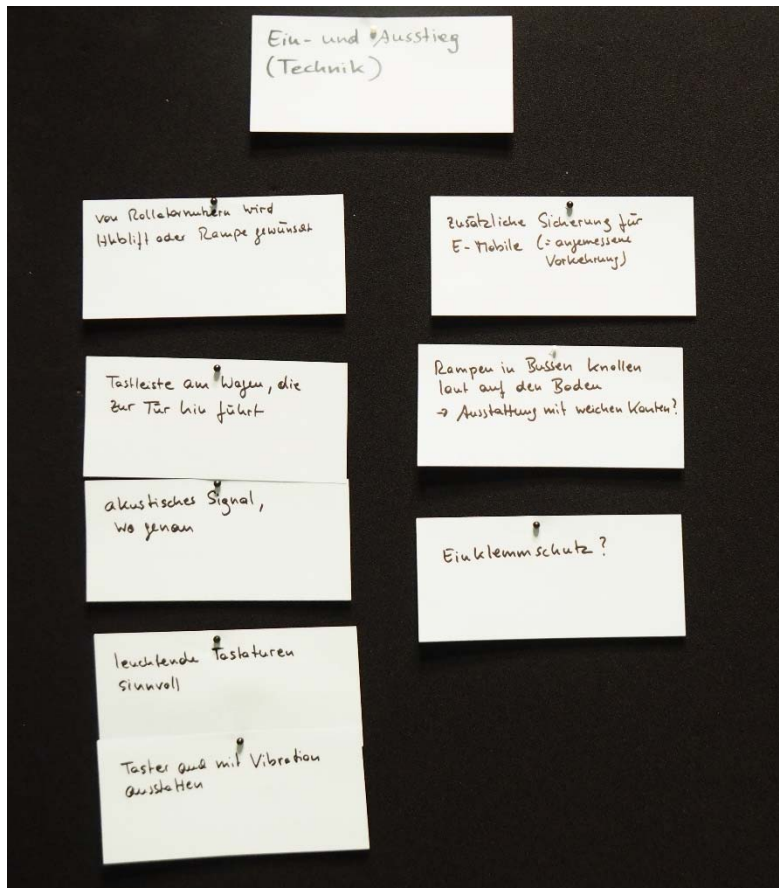 Ein- und Ausstieg
(Technik)
von Rollatornutzern wird
Hublift oder Rampe gewünscht
Tastleiste am Wagen, die
zur Tür hin führt
akustisches Signal,
wo genau
leuchtende Tastaturen
sinnvoll
Taster auch mit Vibration
ausstatten
zusätzliche Sicherung für
E-Mobile (: angemessene
Vorkehrung)
Rampen in Bussen knallen
laut auf den Boden
→ Ausstattung mit weichen Kanten?
Einklemmschutz?